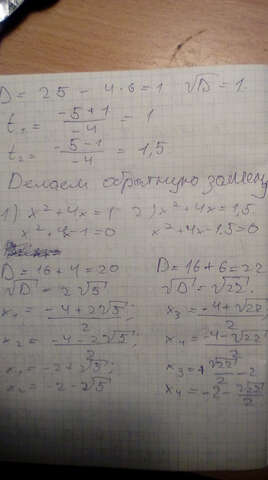 D = 25 - 4·6 = 1 √D = 1.
t₁ = (-5+1)/(-4) = 1
t₂ = (-5-1)/(-4) = 1,5
Делаем обратную замену
1) x² + 4x = 1 2) x² + 4x = 1,5
x² + 4x - 1 = 0 x² + 4x - 1,5 = 0
D = 16 + 4 = 20 D = 16 + 6 = 22
√D = 2√5 √D = √22.
x₁ = (-4 + 2√5)/2; x₃ = (-4 + √22)/2
x₂ = (-4 - 2√5)/2; x₄ = (-4 - √22)/2
x₁ = -2 + √5; x₃ = + √22/2 - 2
x₂ = -2 - √5 x₄ = -2 - √22/2